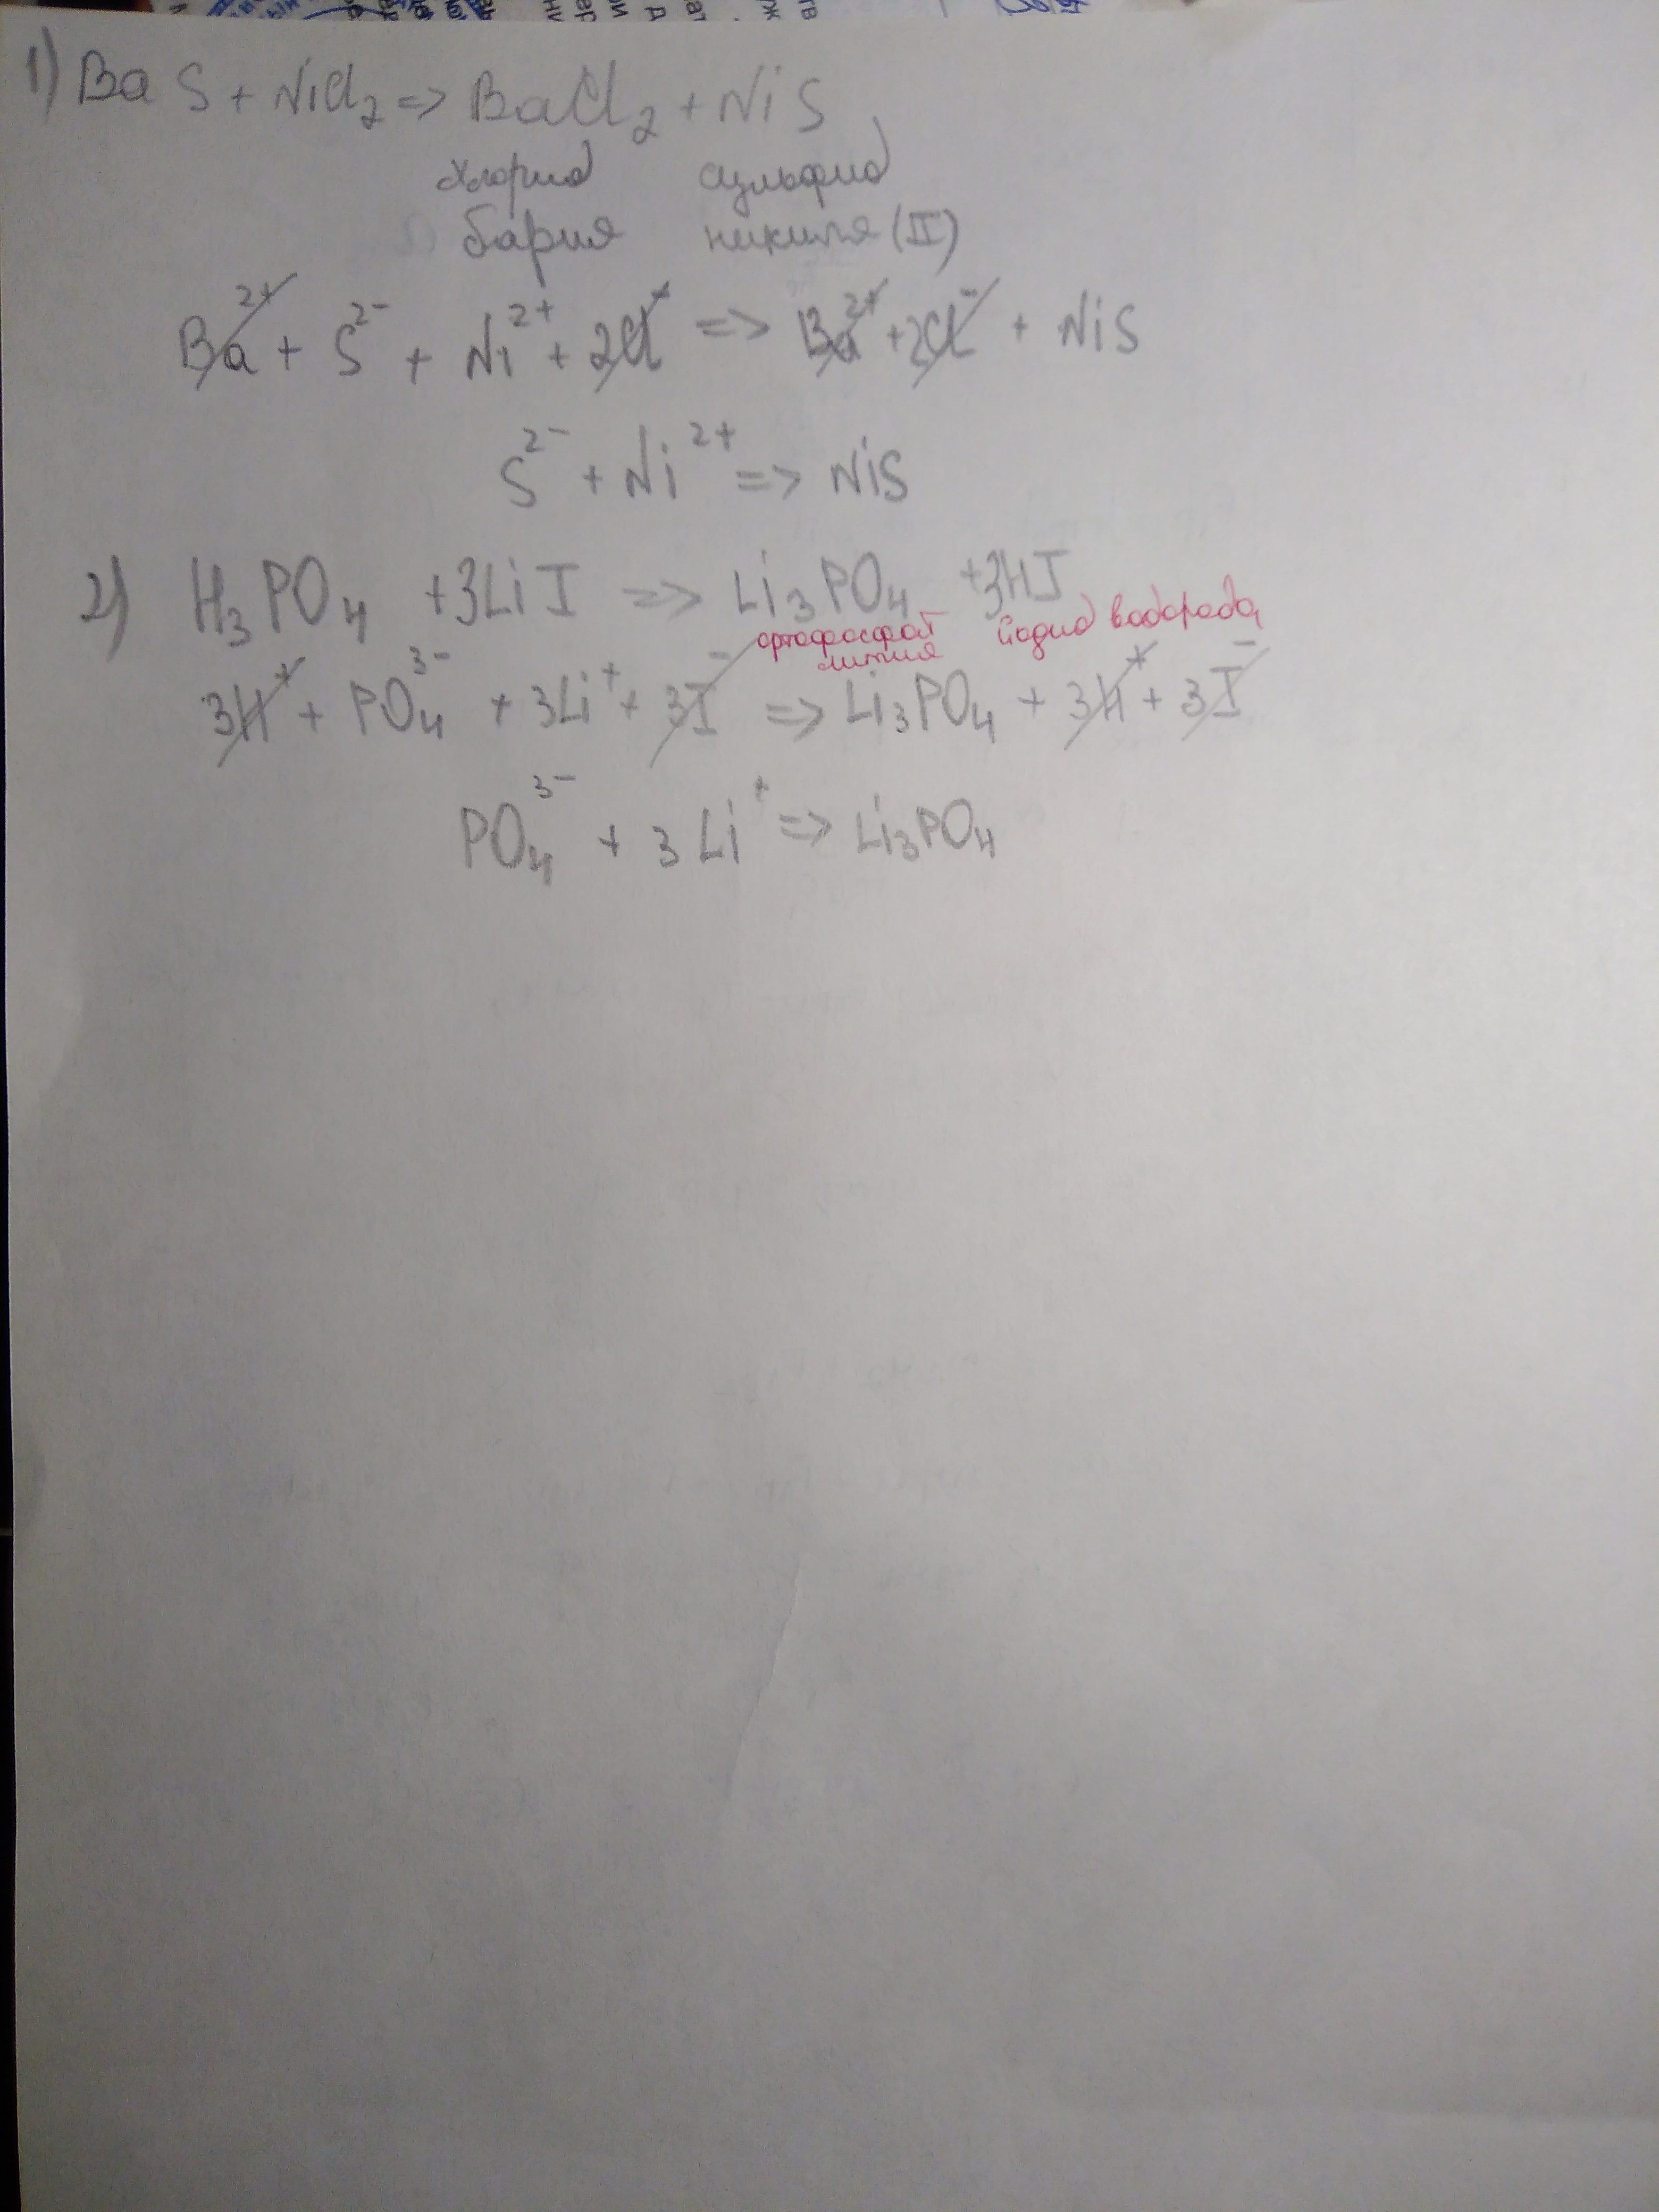 1) BaS + NiCl₂ => BaCl₂ + NiS
хлорид сульфид
бария никиля (II)
Ba²⁺ + S²⁻ + Ni²⁺ + 2Cl⁻ => Ba²⁺ + 2Cl⁻ + NiS
S²⁻ + Ni²⁺ => NiS
2) H₃PO₄ + 3LiI => Li₃PO₄ + 3HI
ортофосфат йодид водорода
лития
3H⁺ + PO₄³⁻ + 3Li⁺ + 3I⁻ => Li₃PO₄ + 3H⁺ + 3I⁻
PO₄³⁻ + 3Li⁺ => Li₃PO₄